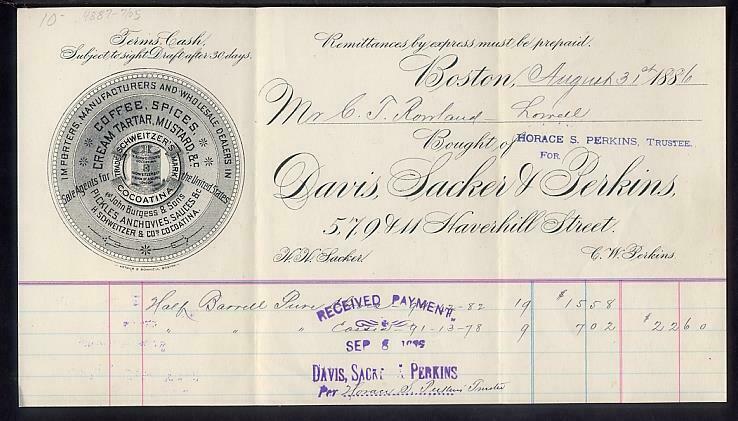 10- 4887-765
Terms Cash.
Subject to sight Draft after 30 days.
Remittances by express must be prepaid.
Boston, August 31st 1886
Mr C. T. Rowland Lowell
Bought of HORACE S. PERKINS, TRUSTEE.
FOR
Davis, Sacker & Perkins,
5, 7, 9 & 11 Haverhill Street.
W. H. Sacker. C. W. Perkins.
IMPORTERS, MANUFACTURERS AND WHOLESALE DEALERS IN
COFFEE, SPICES,
CREAM TARTAR, MUSTARD, &c
Sole Agents for the United States
TRADE MARK
SCHWEITZER'S
COCOATINA
John Burgess & Sons
PICKLES, ANCHOVIES, SAUCES &c
H. SCHWEITZER & CO'S COCOATINA.
Half Barrell Pure 82 19 $15 58
" " " Cassia 91-13-78 9 7 02 $22 60
RECEIVED PAYMENT
SEP 8
DAVIS, SACKER & PERKINS
Per Horace S. Perkins Trustee